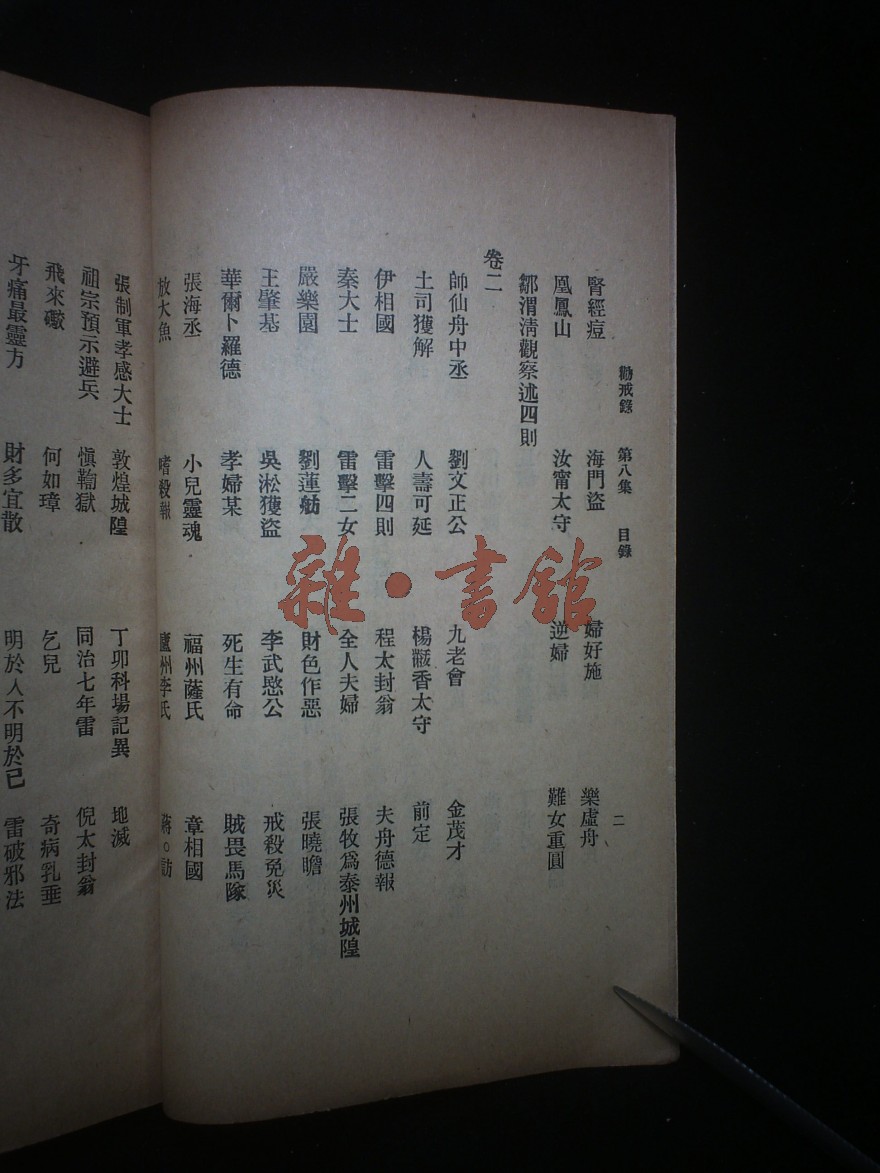 勸戒錄 第八集 目錄 二
腎經痘 海門盜 婦好施 樂虛舟
凰鳳山 汝甯太守 逆婦 難女重圓
鄒渭清觀察述四則
卷二
帥仙舟中丞 劉文正公 九老會 金茂才
土司獲解 人壽可延 楊黻香太守 前定
伊相國 雷擊四則 程太封翁 夫舟德報
秦大士 雷擊二女 全人夫婦 張牧爲泰州城隍
嚴樂園 劉蓮舫 財色作惡 張曉瞻
王肇基 吳淞獲盜 李武愍公 戒殺免災
華爾卜羅德 孝婦某 死生有命 賊畏馬隊
張海丞 小兒靈魂 福州薩氏 章相國
放大魚 嗜殺報 廬州李氏
張制軍孝感大士 敦煌城隍 丁卯科場記異 地滅
祖宗預示避兵 愼鞫獄 同治七年雷 倪太封翁
飛來礮 何如璋 乞兒 奇病乳垂
牙痛最靈方 財多宜散 明於人不明於己 雷破邪法
雜·書館